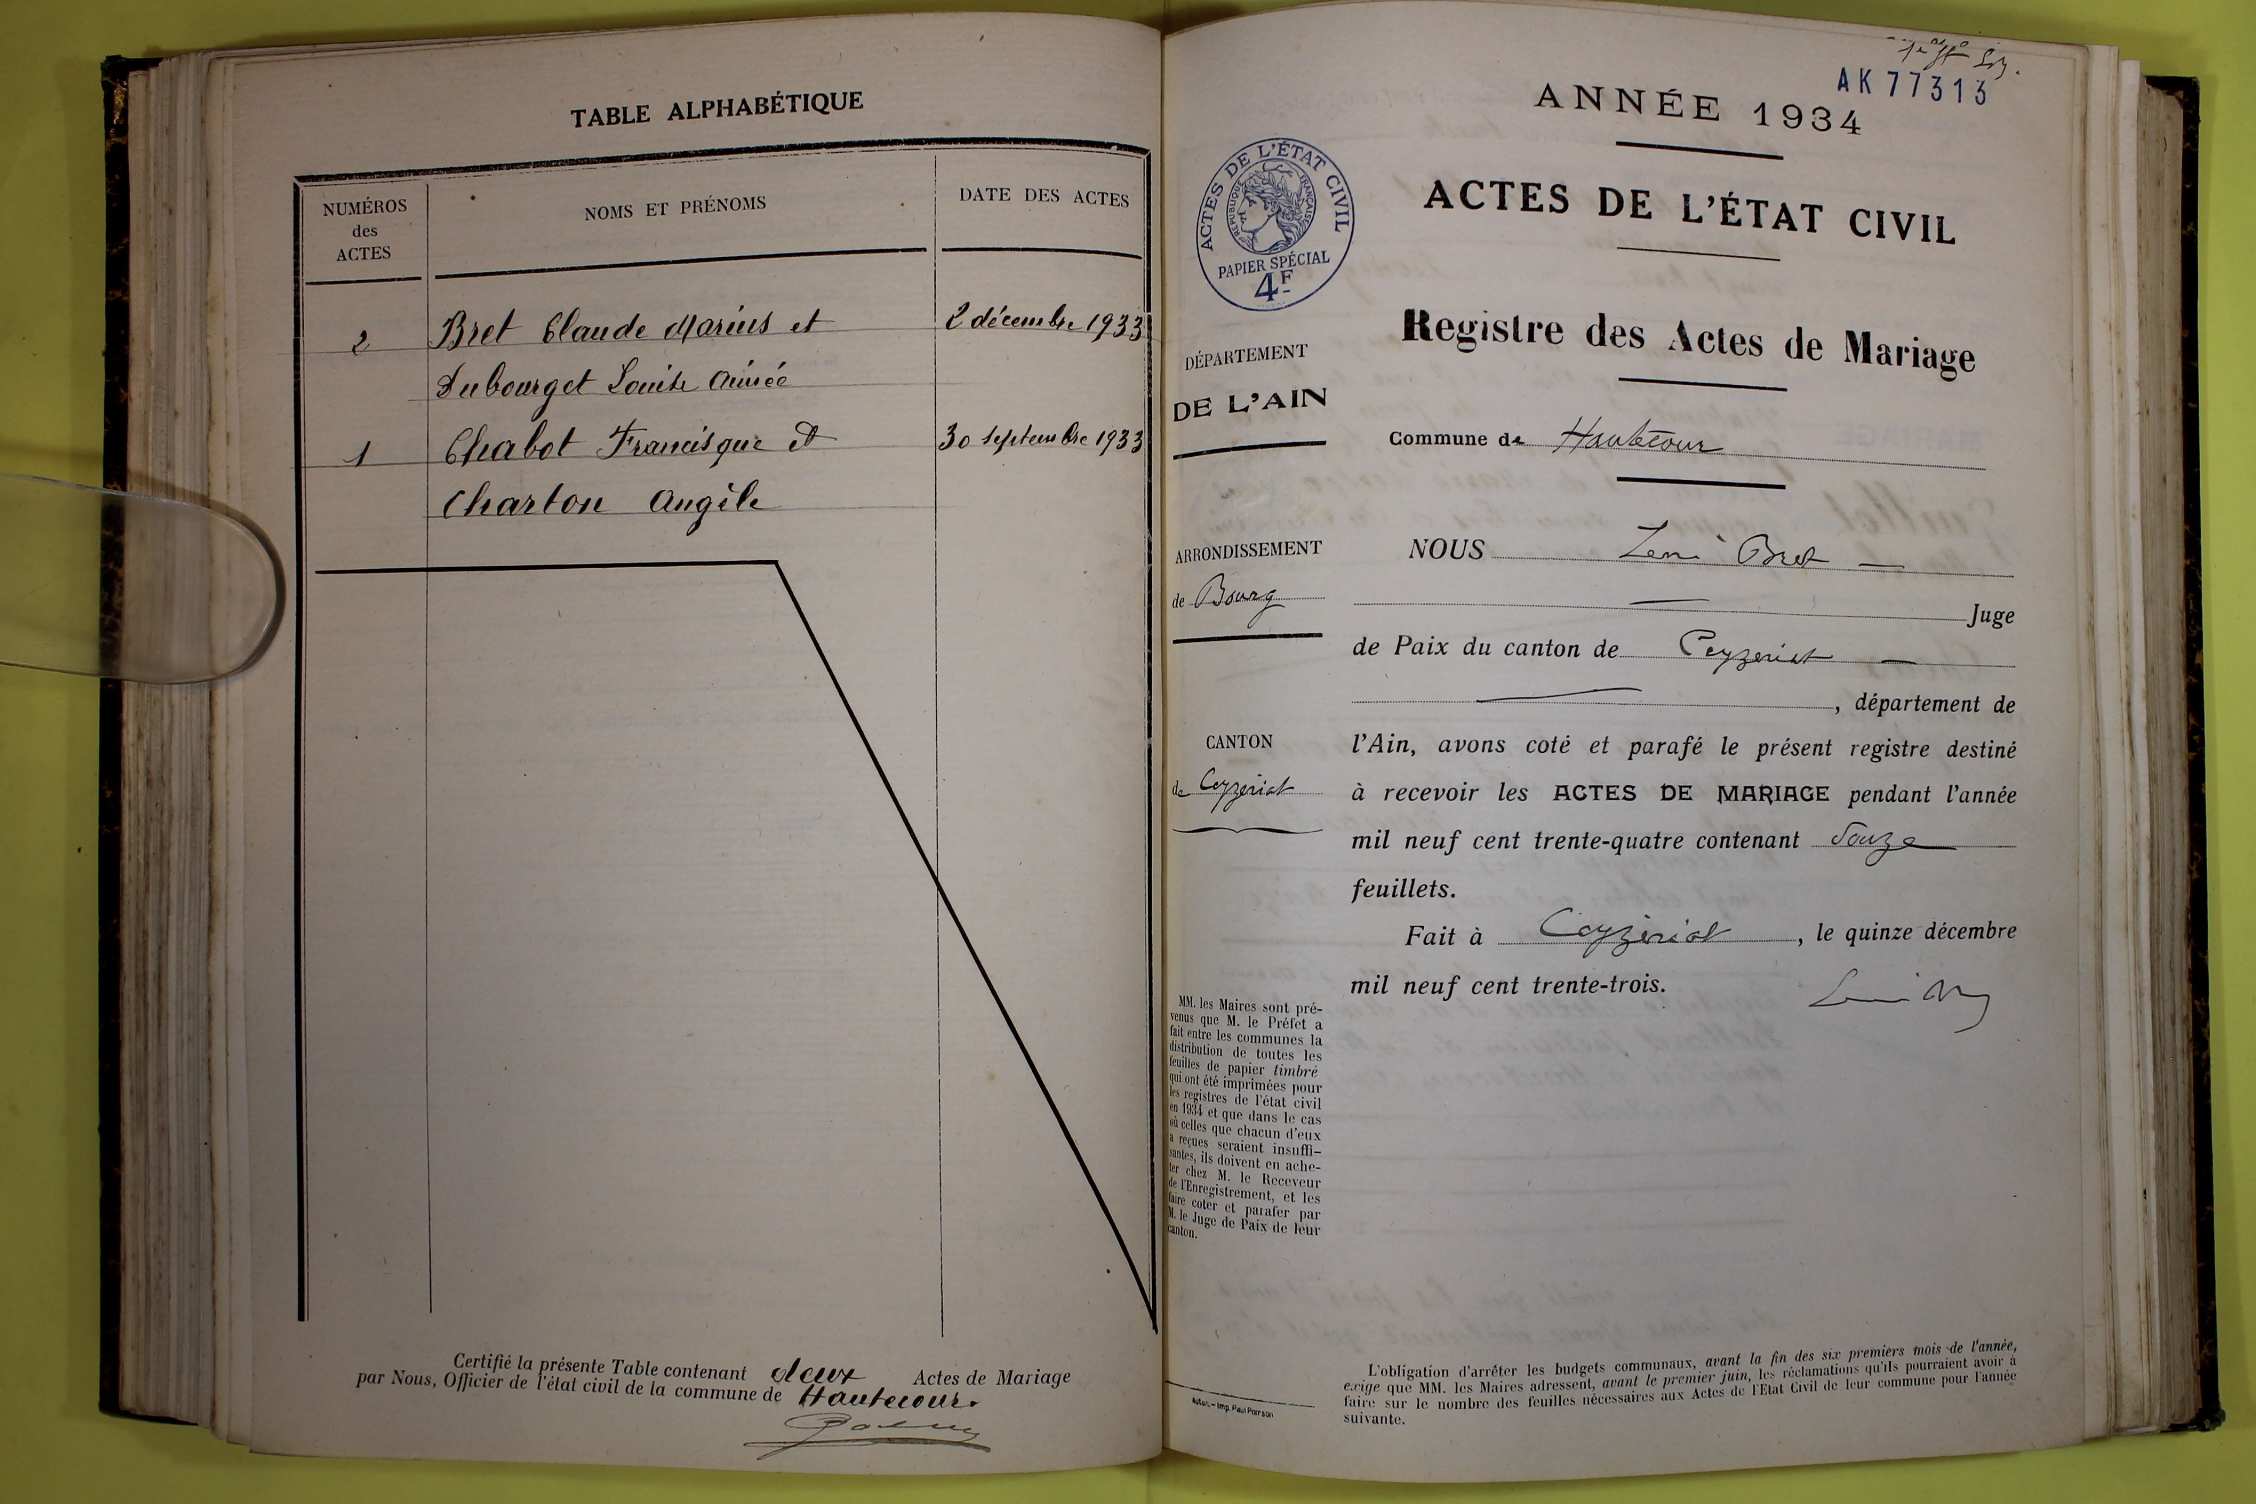 TABLE ALPHABÉTIQUE
NUMÉROS
des
ACTES
NOMS ET PRÉNOMS
DATE DES ACTES
2 Bret Claude Marius et 2 décembre 1933
Dubourget Louise Aimée
1 Chabot Francisque et 30 septembre 1933
Charton Angèle
Certifié la présente Table contenant deux Actes de Mariage
par Nous, Officier de l'état civil de la commune de Hautecour.
AK 77313
ANNÉE 1934
ACTES DE L'ÉTAT CIVIL
RÉPUBLIQUE FRANÇAISE
PAPIER SPÉCIAL
4F
ACTES DE L'ÉTAT CIVIL
Registre des Actes de Mariage
DÉPARTEMENT
DE L'AIN
Commune de Hautecour
ARRONDISSEMENT
de Bourg
CANTON
de Ceyzériat
NOUS Bret
Juge
de Paix du canton de Ceyzeriat
, département de
l'Ain, avons coté et parafé le présent registre destiné
à recevoir les ACTES DE MARIAGE pendant l'année
mil neuf cent trente-quatre contenant Douze
feuillets.
Fait à Ceyzériat, le quinze décembre
mil neuf cent trente-trois.
MM. les Maires sont pré-
venus que M. le Préfet a
fait entre les communes la
distribution de toutes les
feuilles de papier timbré
qui ont été imprimées pour
les registres de l'état civil
en 1934 et que dans le cas
où celles que chacun d'eux
a reçues seraient insuffi-
santes, ils doivent en ache-
ter chez M. le Receveur
de l'Enregistrement, et les
faire coter et parafer par
M. le Juge de Paix de leur
canton.
Imp. Paul
L'obligation d'arrêter les budgets communaux, avant la fin des six premiers mois de l'année,
exige que MM. les Maires adressent, avant le premier juin, les réclamations qu'ils pourraient avoir à
faire sur le nombre des feuilles nécessaires aux Actes de l'État Civil de leur commune pour l'année
suivante.